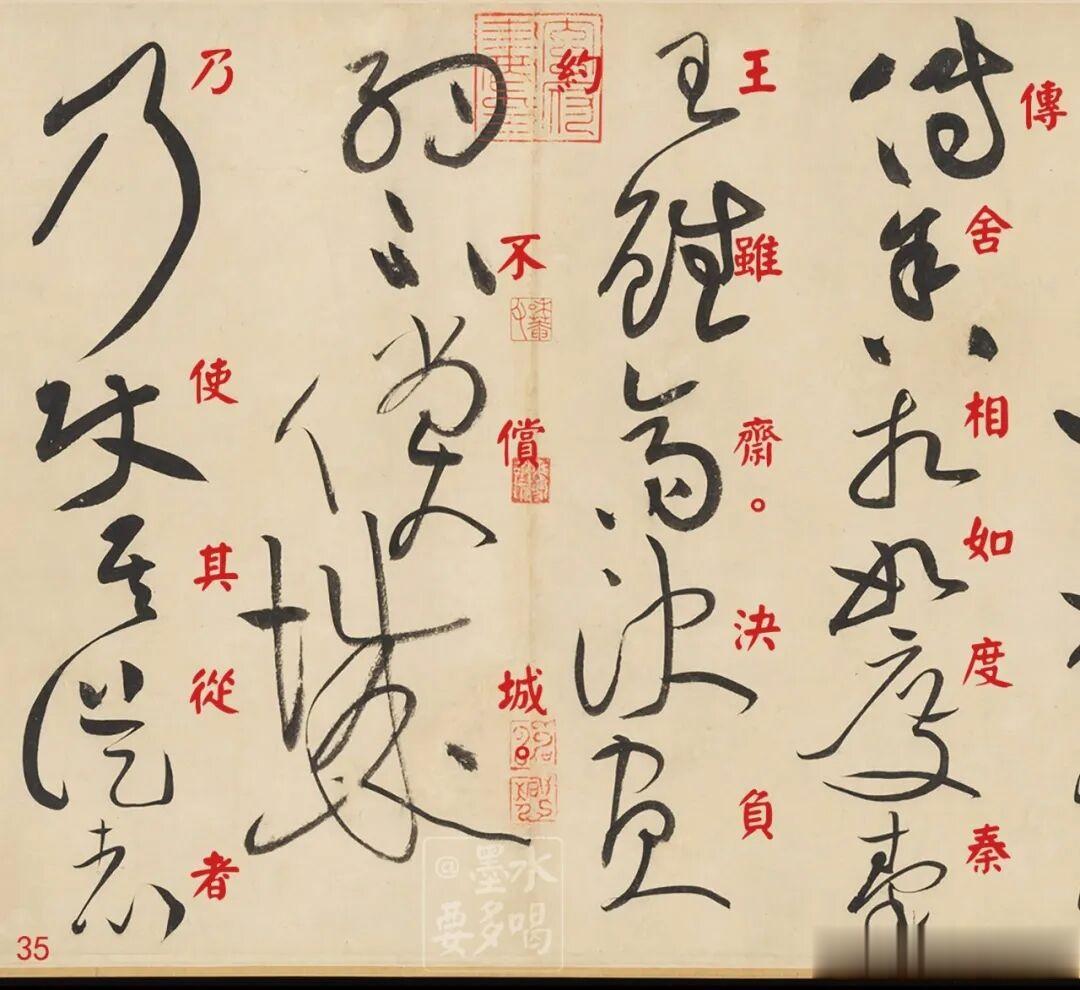 傳舍相如度秦
王雖齋。決負
約不償城。
乃使其從者
35
@墨水
要多喝